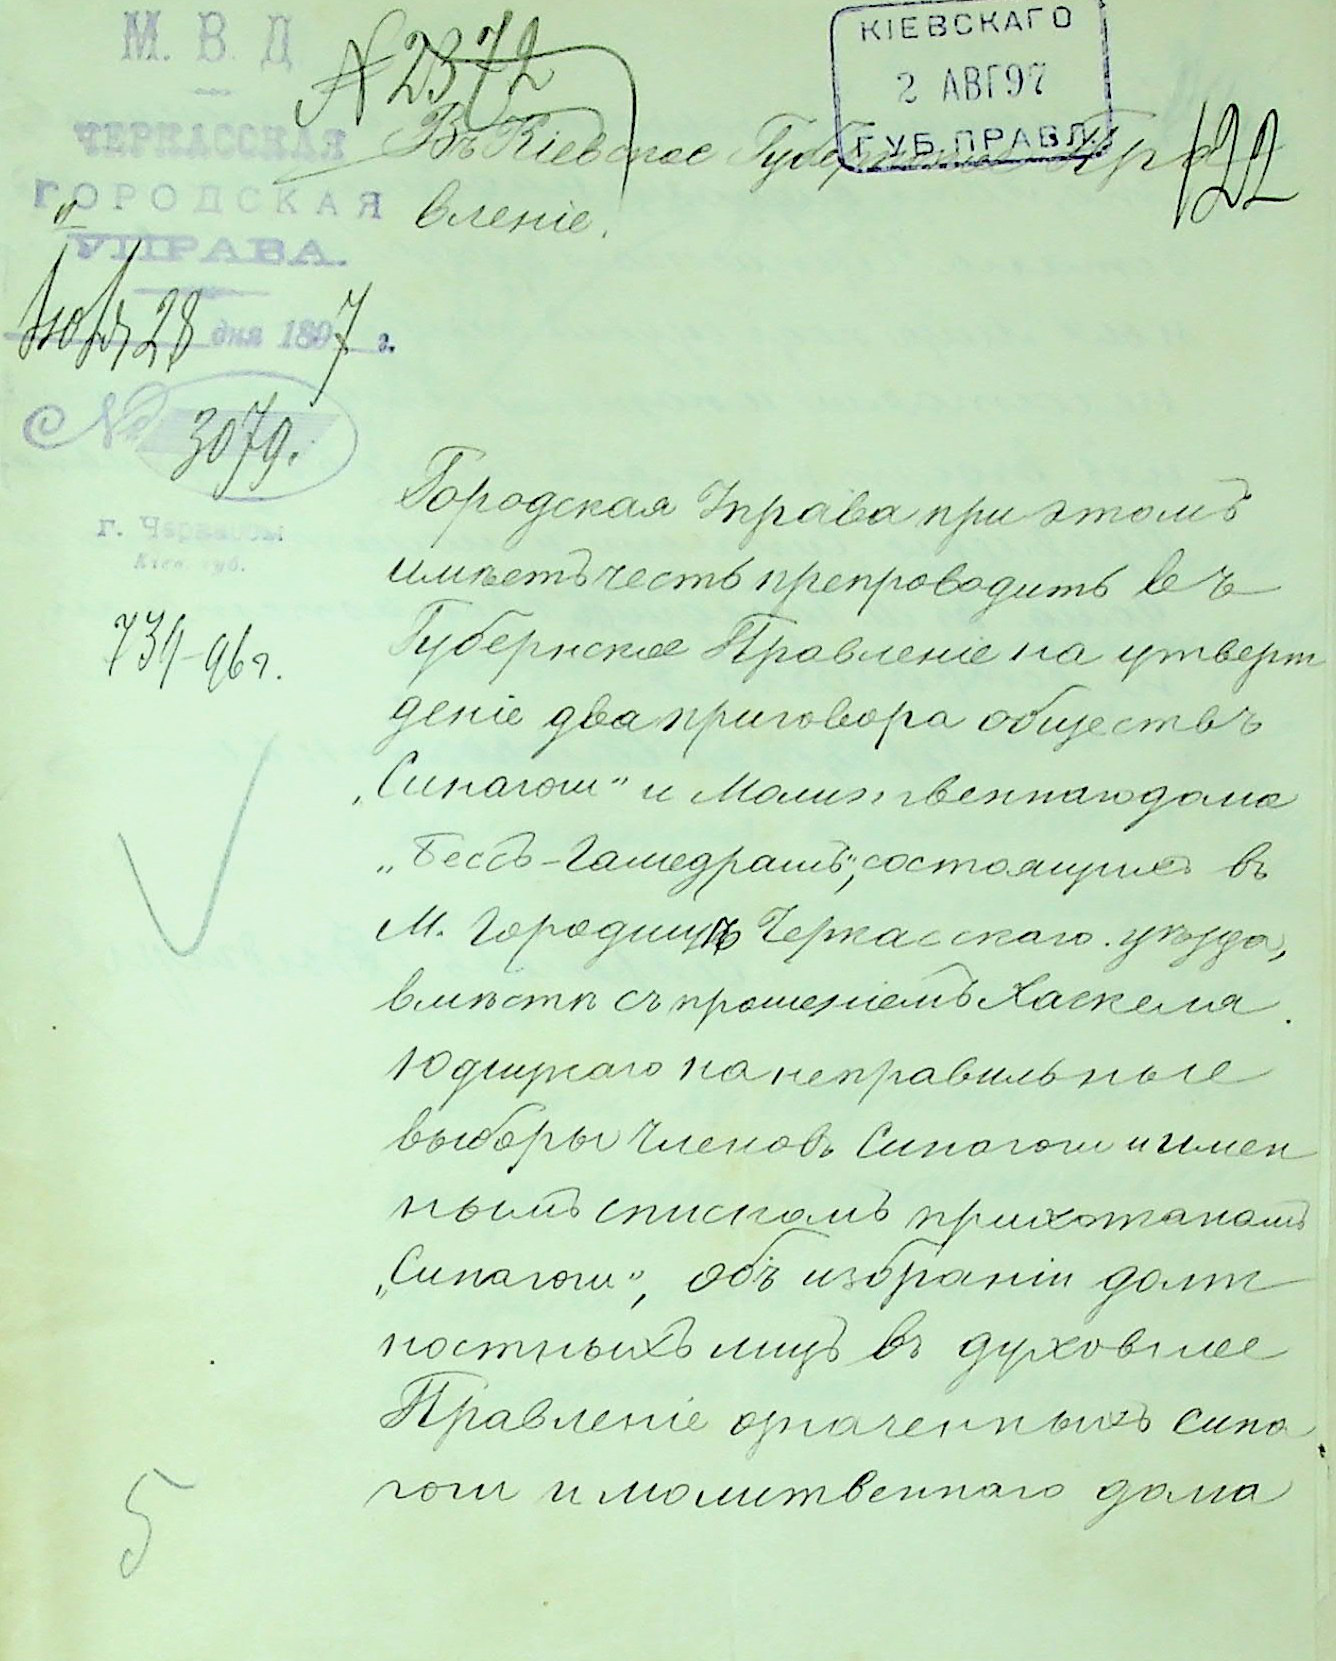 М. В. Д
ЧЕРКАССКАЯ
ГОРОДСКАЯ
УПРАВА.
Июля 28 дня 1897 г.
№ 3079.
г. Черкассы
Кіев. губ.
734-96 г.
№ 2372
КІЕВСКАГО
2 АВГ 97
ГУБ. ПРАВЛ
122
Въ Кіевское Губернское Пра
вленіе.
Городская Управа при этомъ
имѣетъ честь препроводить въ
Губернское Правленіе на утверж
деніе два приговора обществъ
„Синагоги" и Молитвеннаго дома
„Бесъ-Гамедрашъ", состоящихъ въ
М. Городищѣ Черкасскаго уѣзда,
вмѣстѣ съ прошеніемъ Хаскеля
на неправильные
выборы Членовъ Синагоги и имен
нымъ спискомъ прихожанамъ
„Синагоги", объ избраніи долж
ностныхъ лицъ въ духовное
Правленіе означенныхъ сина
гоги и молитвеннаго дома
5